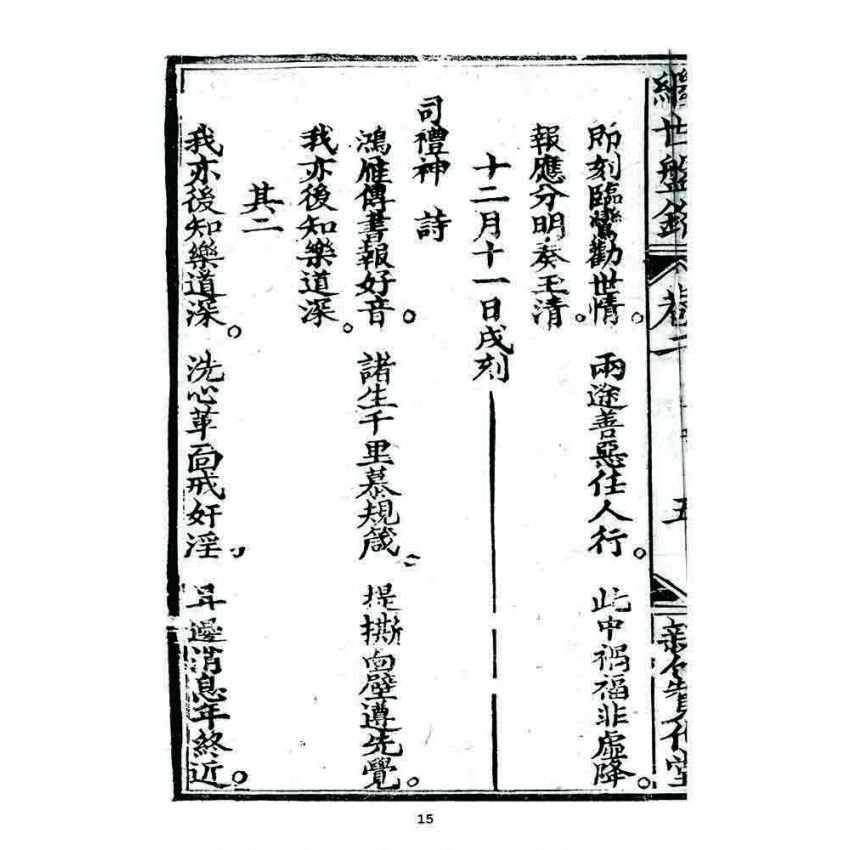 世盤
卷二
五
即刻臨鸞勸世情。 兩途善惡任人行。 此中禍福非虛降。
報應分明奏玉清。
十二月十一日戌刻
司禮神 詩
鴻雁傳書報好音。 諸生千里慕規箴。 提撕面壁遵先覺。
我亦後知樂道深。
其二
我亦後知樂道深。 洗心革面戒奸淫。 耳邊消息年終近。
15